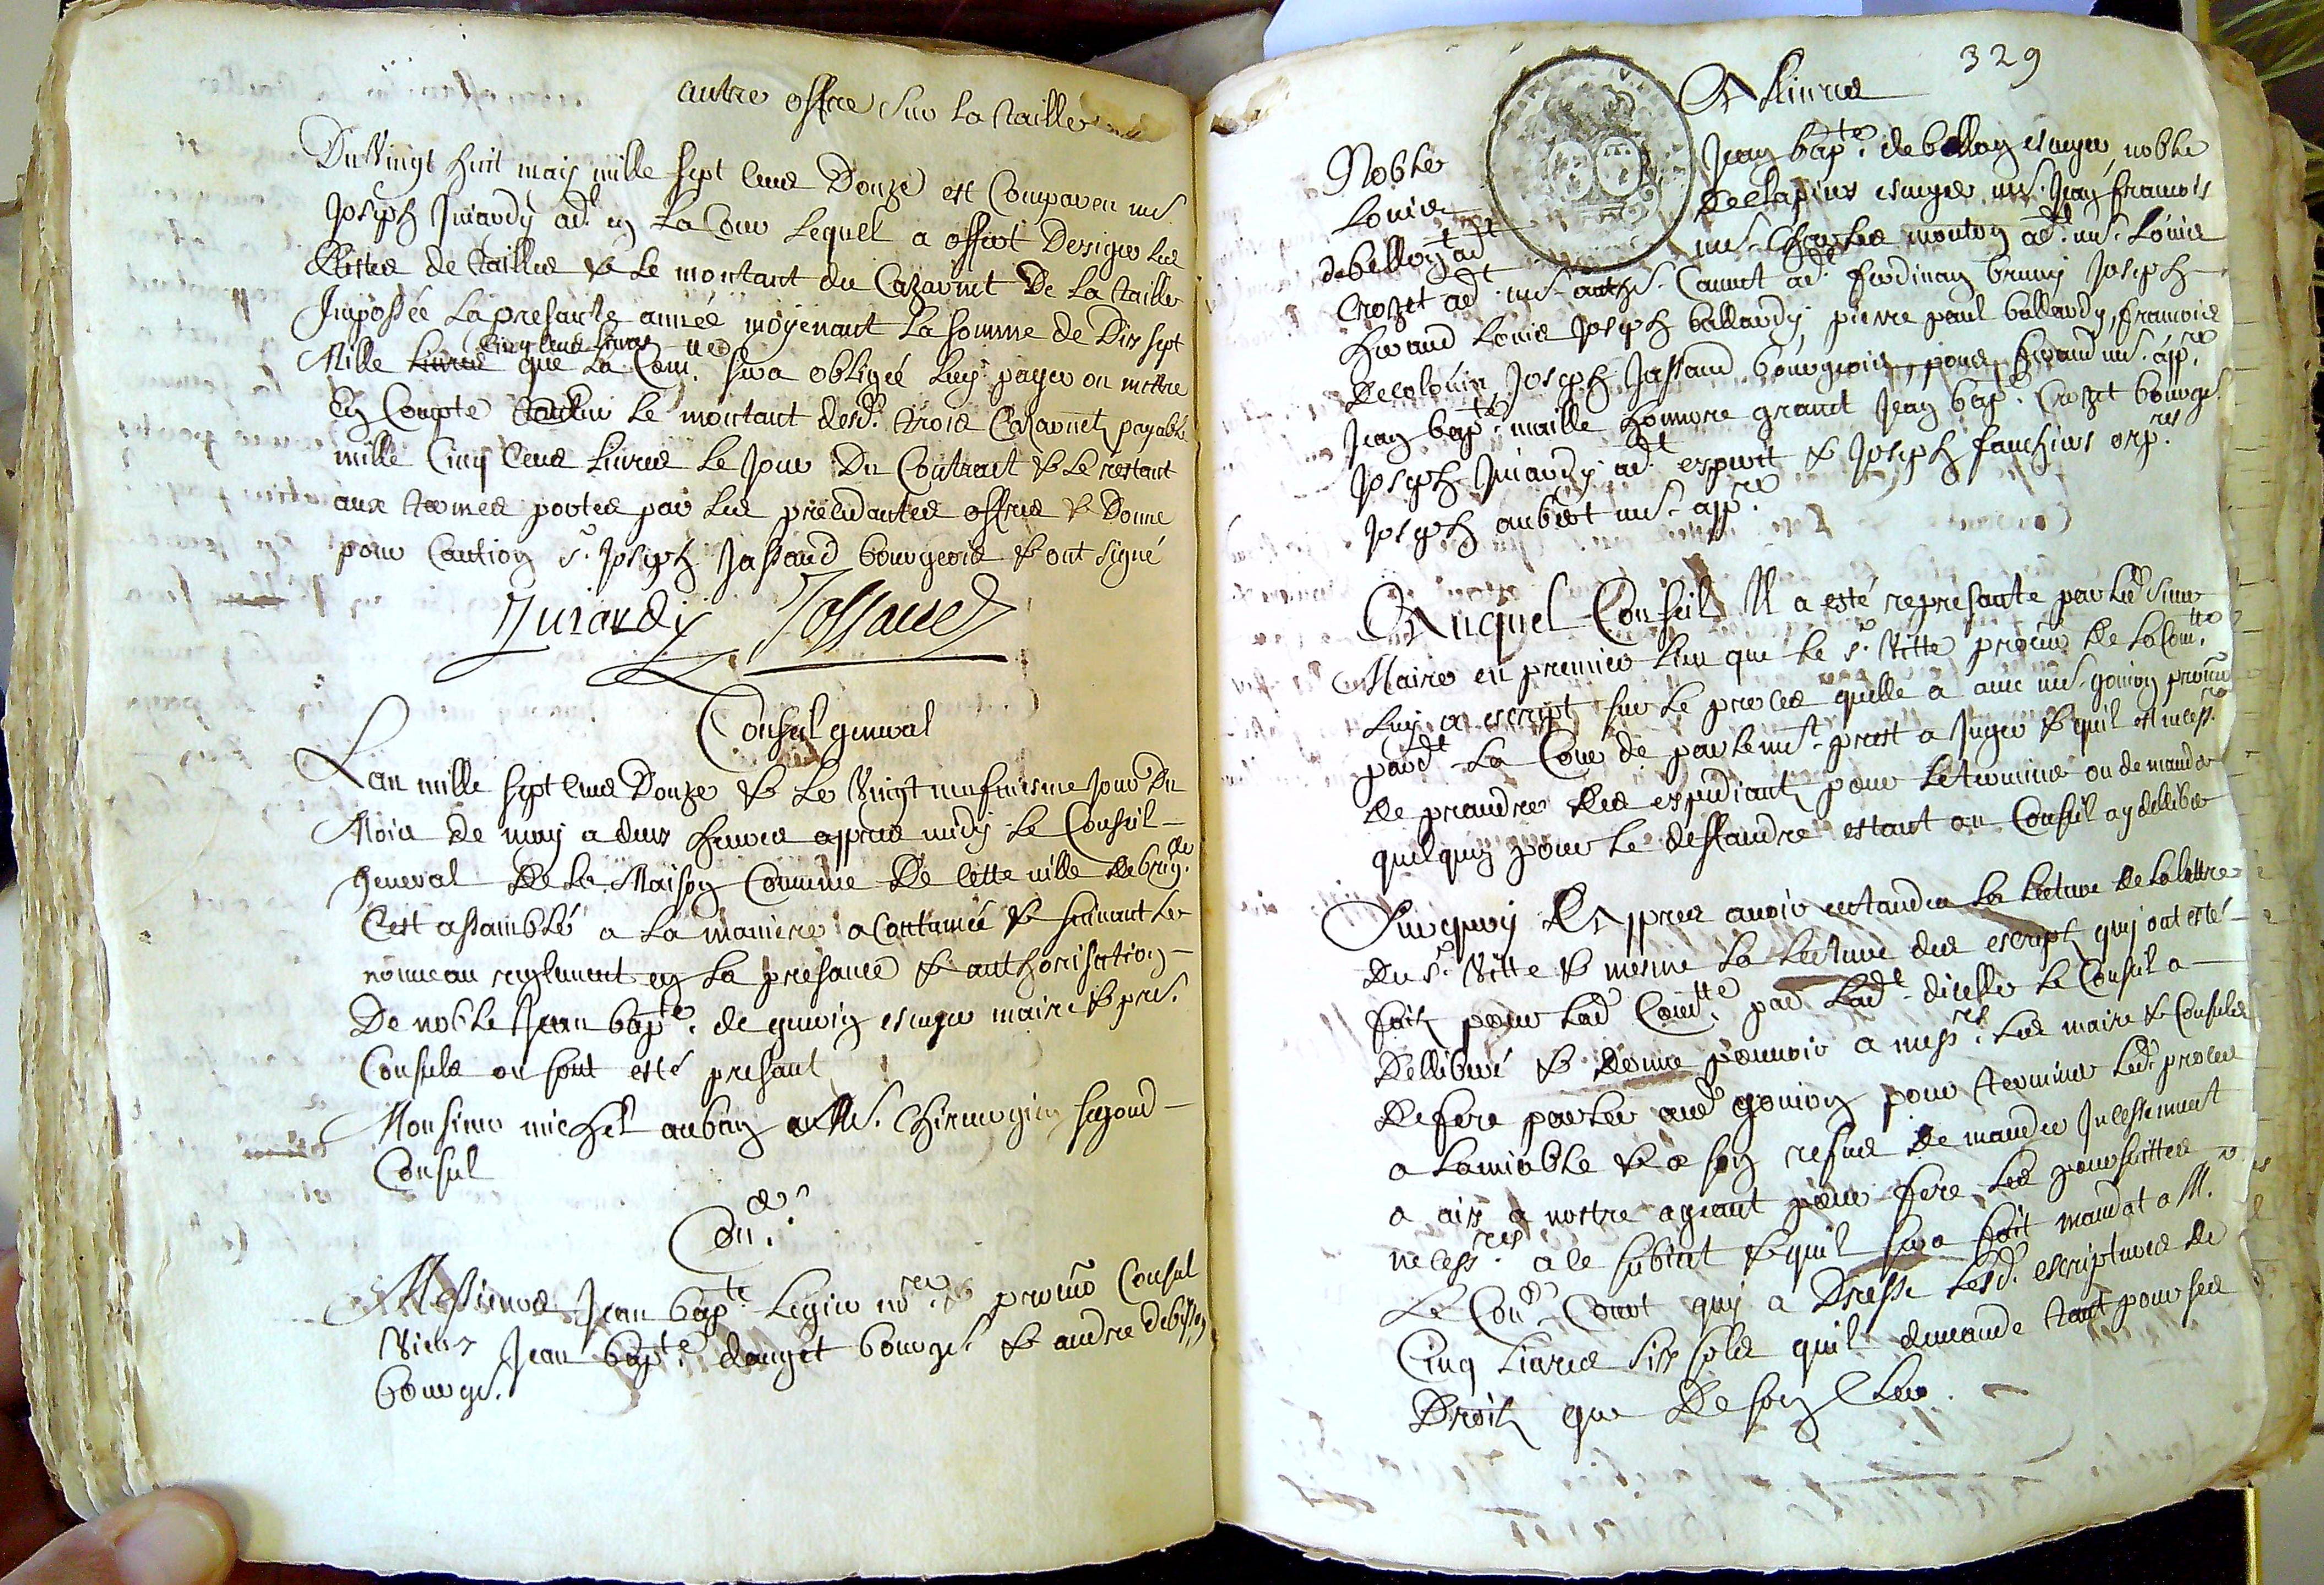 autre offre sur la taille
Du vingt huit may mille sept cens douze est compareu me
Joseph Juiardy adt en la cour lequel a offert desiger les
Restes de tailles & le montant du cazarnet de la taille
Imposée la presante année moyenant la somme de dix sept
Mille livres cinq cens livres que la Comté sera obligée luy payer ou mettre
En compte sur le montant desd. trois cazarnets payable
mille cinq cens livres le jour du contract & le restant
aux termes portes par les precedantes offres & donne
pour caution sr. Joseph Jassaud bourgeois & ont signé
Juiardy Jassaud
Conseil general
Lan mille sept cens douze & le vingt neufviesme jour du
Mois de may a deux heures appres midy le Conseil
general de la Maison Comune de cette ville de brig.lle
cest assamblé a la maniere acoutumée & suivant le
nouveau reglement en la presance & authorisation
De noble Jean bapte. de gueriny escuyer maire & pre.
Consuls ou sont esté presant
Monsieur michel aubin me. chirurgien segond
Consul
Con.er
Messieurs Jean bapte. Legier nore. & premier Consul
vieux Jean bapte. dauget bourge. & andre debisson
bourge.
329
A Livre
Noble Jean bapte. de bellon escuyer, noble
Louis declapiers escuyer me. Jean francois
debellon adt me. Charles mouton adt. me. Louis
Crozet adt me. anthe. Caunet adt ferdinan bruny Joseph
heraud Louis Joseph ballardy pierre paul ballardy, francois
Decolonia Joseph Jassaud bourgeois, pons heraud me. appre.
Jean bapte. maille honnore granet Jean bapt. Crozet bourge.
Joseph Juiardy adt esperit & Joseph fauchiers orp.res
Joseph aubert me. appre.
Auquel Conseil Il a esté represante par led sieur
Maire en premier lieu que le sr. vitte procur de la Comtte
luy a escript sur le proces quelle a avec me. goiron procur
pard.t la Cour de parlemt. prest a juger & quil est necess.re
de prandre des expediant pour le terminer ou de mander
quelquun pour le deffandre estant au Conseil a y deliberer
Surquoy Et appres avoir entandeu la lecture de la lettre
du sr. vitte & mesme la lecture des escript quy ont esté
fait pour lad Comtte par ladt. dicelle le Conseil a
Delliberé & donne pouvoir a messrs. les maire & Consuls
de fere parler aud goiron pour terminer led. proces
a lamiable & a son refus de mander Incessement
a aix a nostre ageant pour fere les poursuittes
necessres. a ce subiet & quil sera fait mandat a M.r
Le Coner. Couert quy a dresse lesd. escriptures de
Cinq livres six sols quil demande tant pour ses
Droit que de son Clerc.